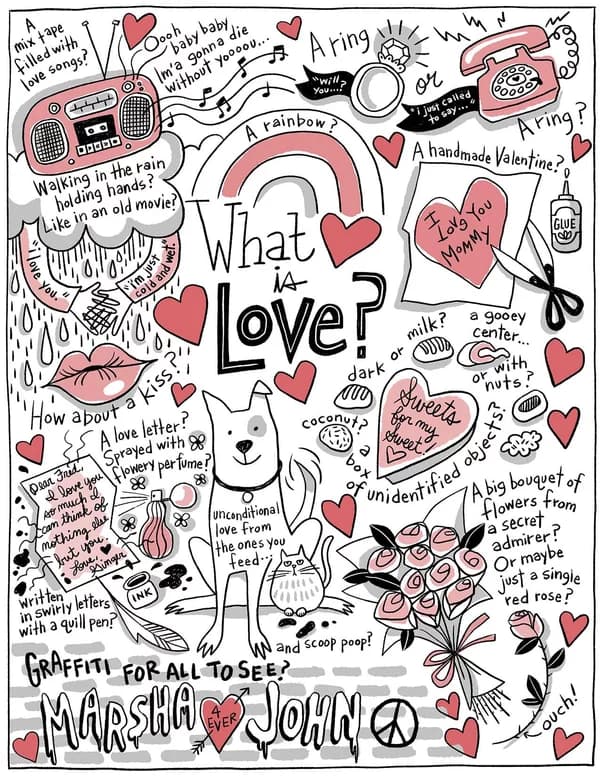 A
mix tape
filled with
love songs?
Oooh
baby baby
Im'a gonna die
without yoooou...
A ring
"Will
you...?"
or
"I just called
to say..."
A ring?
A rainbow?
Walking in the rain
holding hands?
Like in an old movie?
"I love you."
"I'm just
cold and wet."
What
is
Love?
A handmade Valentine?
I
Love You
Mommy
GLUE
How about a kiss?
dark or milk?
a gooey
center...
or with
nuts?
coconut?
Sweets
for my
Sweet!
a box of unidentified objects?
A love letter?
Sprayed with
flowery perfume?
Dear Fred,
I love you
so much I
can think of
nothing else
but you
Love
Ginger
INK
written
in swirly letters
with a quill pen?
unconditional
love from
the ones you
feed...
and scoop poop?
A big bouquet of
flowers from
a secret
admirer?
Or maybe
just a single
red rose?
ouch!
GRAFFITI FOR ALL TO SEE?
MARSHA
4
EVER
JOHN